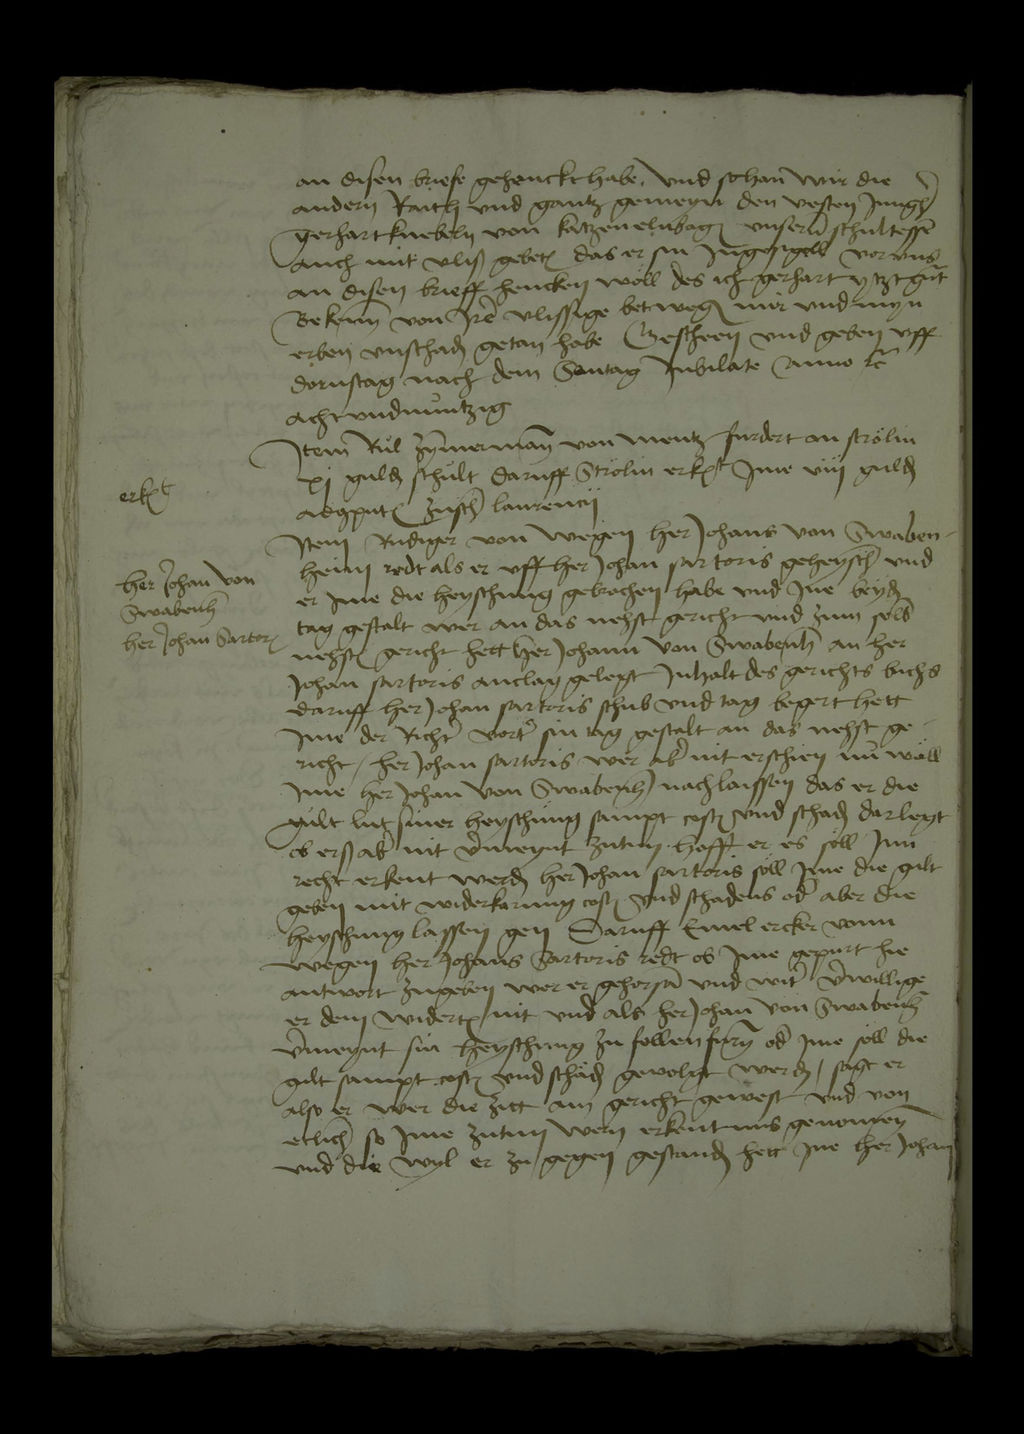 an disen briefe gehenckt habe. Und so han wir die
andern Raith und gantz gemeyn den vesten Jungh(er)
Gerhart Knebeln von Katzenelnbog(en) unsern schulteß
auch mit vliß gebet(en) das er sin Ingesigell vor uns
an disen brieff hencken wöll des ich Gerhart ytztg(enan)t
Bekenn von Jre vlissige bet weg(en) mir und myn
erben unschad(en) getan habe Gescheen und geben uff
dornstag nach dem Sontag Jubilate Anno etc
acht und nuntzig
Item Rul Zymmerman von Mentz furdert an Strölin
xj guld(en) schult daruff Strölin erk(en)t Jme viij guld(en)
ad co(m)put(um) zusch(en) laurencij
erk(en)t
Item Rudiger von wegen her Johans von Swaben-
heim redt als er uff her Johan Sartoris geheysch(en) und
er Jme die heyschung gebrochen habe und Jne beyd(en)
tag gestalt wer an das nehst gericht und zum selb(en)
her Johan von
Swabenh(eim)
her Johan Sartor(is)
nehst(en) gericht hett her Johann von Swabenh(eim) an her
Johan Sartoris anclag gelegt Jnhalt des gerichts buchs
daruff her Johan Sartoris schub und tag begert hett
Jme der Richt(er) vort(er) sin tag gestalt an das nehst ge-
richt / her Johan Sartoris wer ab(er) nit erschien nu wöll
Jme her Johan von Swabenh(eim) nachlaissen das er die
gult lut siner heyschung sampt cost(en) und schad(en) darlegt
ob erß ab(er) nit v(er)meynt zutun hofft er es soll Jnn
recht erkent werd(en) her Johan Sartoris soll Jme die gult
geben mit widerkarung cost(en) und schadens od(er) aber die
heyschung lassen gen Daruff Emel ercker vonn
wegen her Johans Sartoris redt ob Jme gepurt hie
antwort zugeben wer er gehorsam und wit(er) v(er)willige
er dem widert(eil) nit und als her Johan von Swabenh(eim)
v(er)meynt sin heyschung zu follenfurn od(er) Jme söll die
gult sampt cost(en) und schad(en) gevolgt werd(en) / sagt er
also er wer die zitt am gericht gewest und von
etlich(en) so Jme zutun wern erkentnus genomen
und die wyl er zu gegen gestand(en) hett Jne her Johan